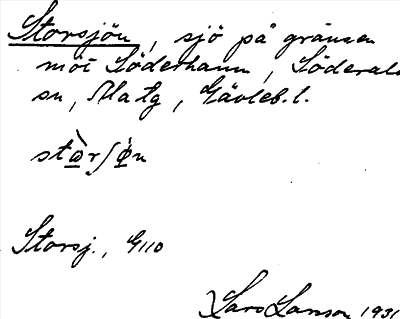 Storsjön, sjö på gränsen
mot Söderhamn, Söderala
sn, Ala tg, Gävleb.l.
stɷ̀rʃø̀n
Storsj., G110
Lars Larsson 1931